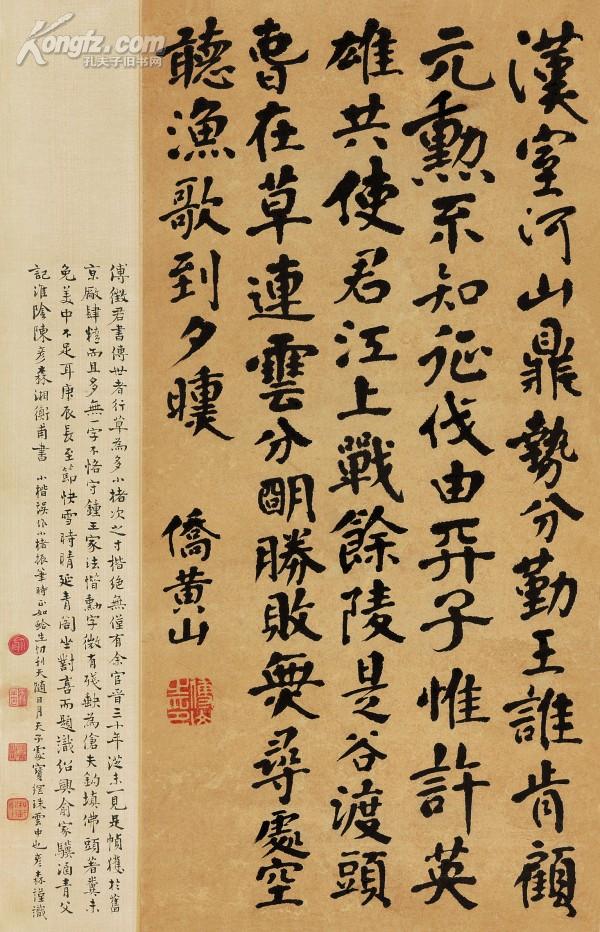 Kongfz.com
孔夫子旧书网
漢室河山鼎勢分勤王誰肯顧
元勳不知征伐由天子惟許英
雄共使君江上戰餘陵是谷渡頭
曹在草連雲分明勝敗無尋處空
聽漁歌到夕曛
僑黃山
傅徵君書傳世者行草為多小楮次之寸楷絕無僅有余官晉三十年從未一見是幀獲於舊
京廠肆精而且多無一字不恪守鍾王家法惜勳字微有殘缺為傖夫鈎填佛頭著糞未
免美中不足耳庚辰長至節快雪時晴延青閣坐對喜而題識紹興俞家驥涵青父
記淮陰陳彥森湘衡甫書 小楷誤作小楮振筆時正如蛤生切利天隨日月天子處寶珠雲中也彥森謹識